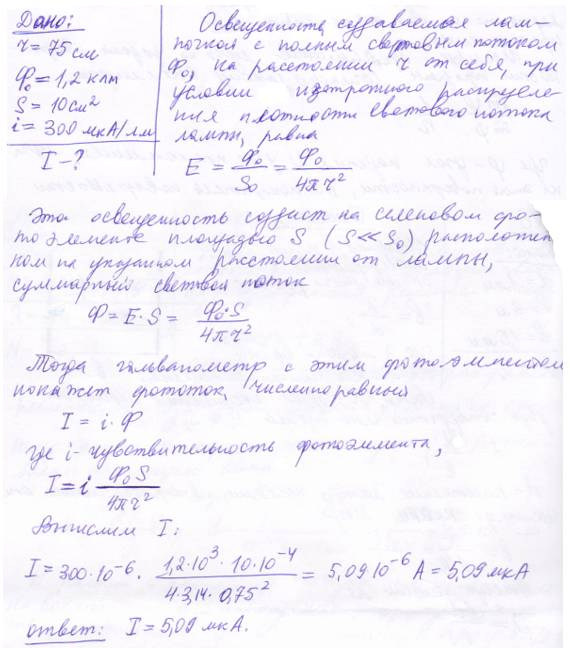 Дано:
r = 75 см
Φ₀ = 1,2 клм
S = 10 см²
i = 300 мкА/лм
I - ?
Освещенность, создаваемая лам-
почкой с полным световым потоком
Φ₀, на расстоянии r от себя, при
условии изотропного распределе-
ния плотности светового потока
лампы, равна
E = Φ₀/S₀ = Φ₀/4πr²
Эта освещенность создаст на селеновом фо-
тоэлементе площадью S (S<<S₀) расположен-
ном на указанном расстоянии от лампы,
суммарный световой поток
Φ = E·S = Φ₀·S/4πr²
Тогда гальванометр с этим фотоэлементом
покажет фототок, численно равный
I = i·Φ
где i - чувствительность фотоэлемента,
I = i Φ₀S/4πr²
Вычислим I:
I = 300·10⁻⁶ · 1,2·10³·10·10⁻⁴/4·3,14·0,75² = 5,09 10⁻⁶ А = 5,09 мкА
ответ: I = 5,09 мкА.